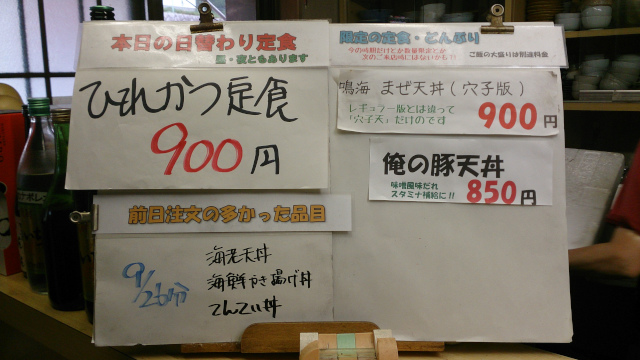 本日の日替わり定食
昼・夜ともあります
ひれかつ定食
900円
前日注文の多かった品目
9/26分
海老天丼
海鮮かき揚げ丼
てんてい丼
限定の定食・どんぶり
今の時期だけとか数量限定とか
次のご来店時にはないかも?!
ご飯の大盛り は別途料金
鳴海 まぜ天丼(穴子版)
レギュラー版とは違って
「穴子天」だけのです
900円
俺の豚天丼
味噌風味だれ
スタミナ補給に!!
850円